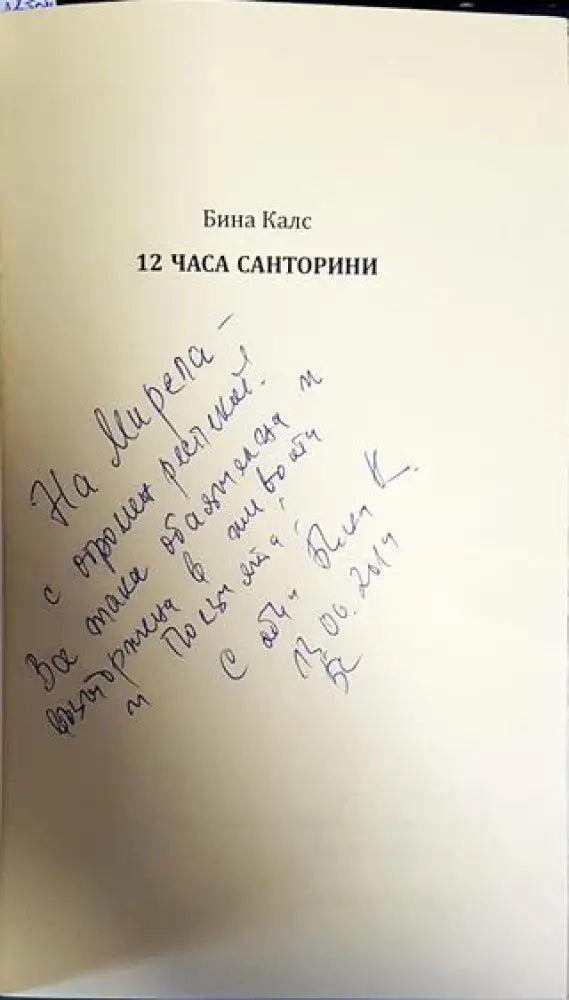 Бина Калс
12 ЧАСА САНТОРИНИ
На Мирела –
с огромен респект!
Все така обаятелна и
възторжена в живота
и поезията!
С обич Бина К.
13.06.2019